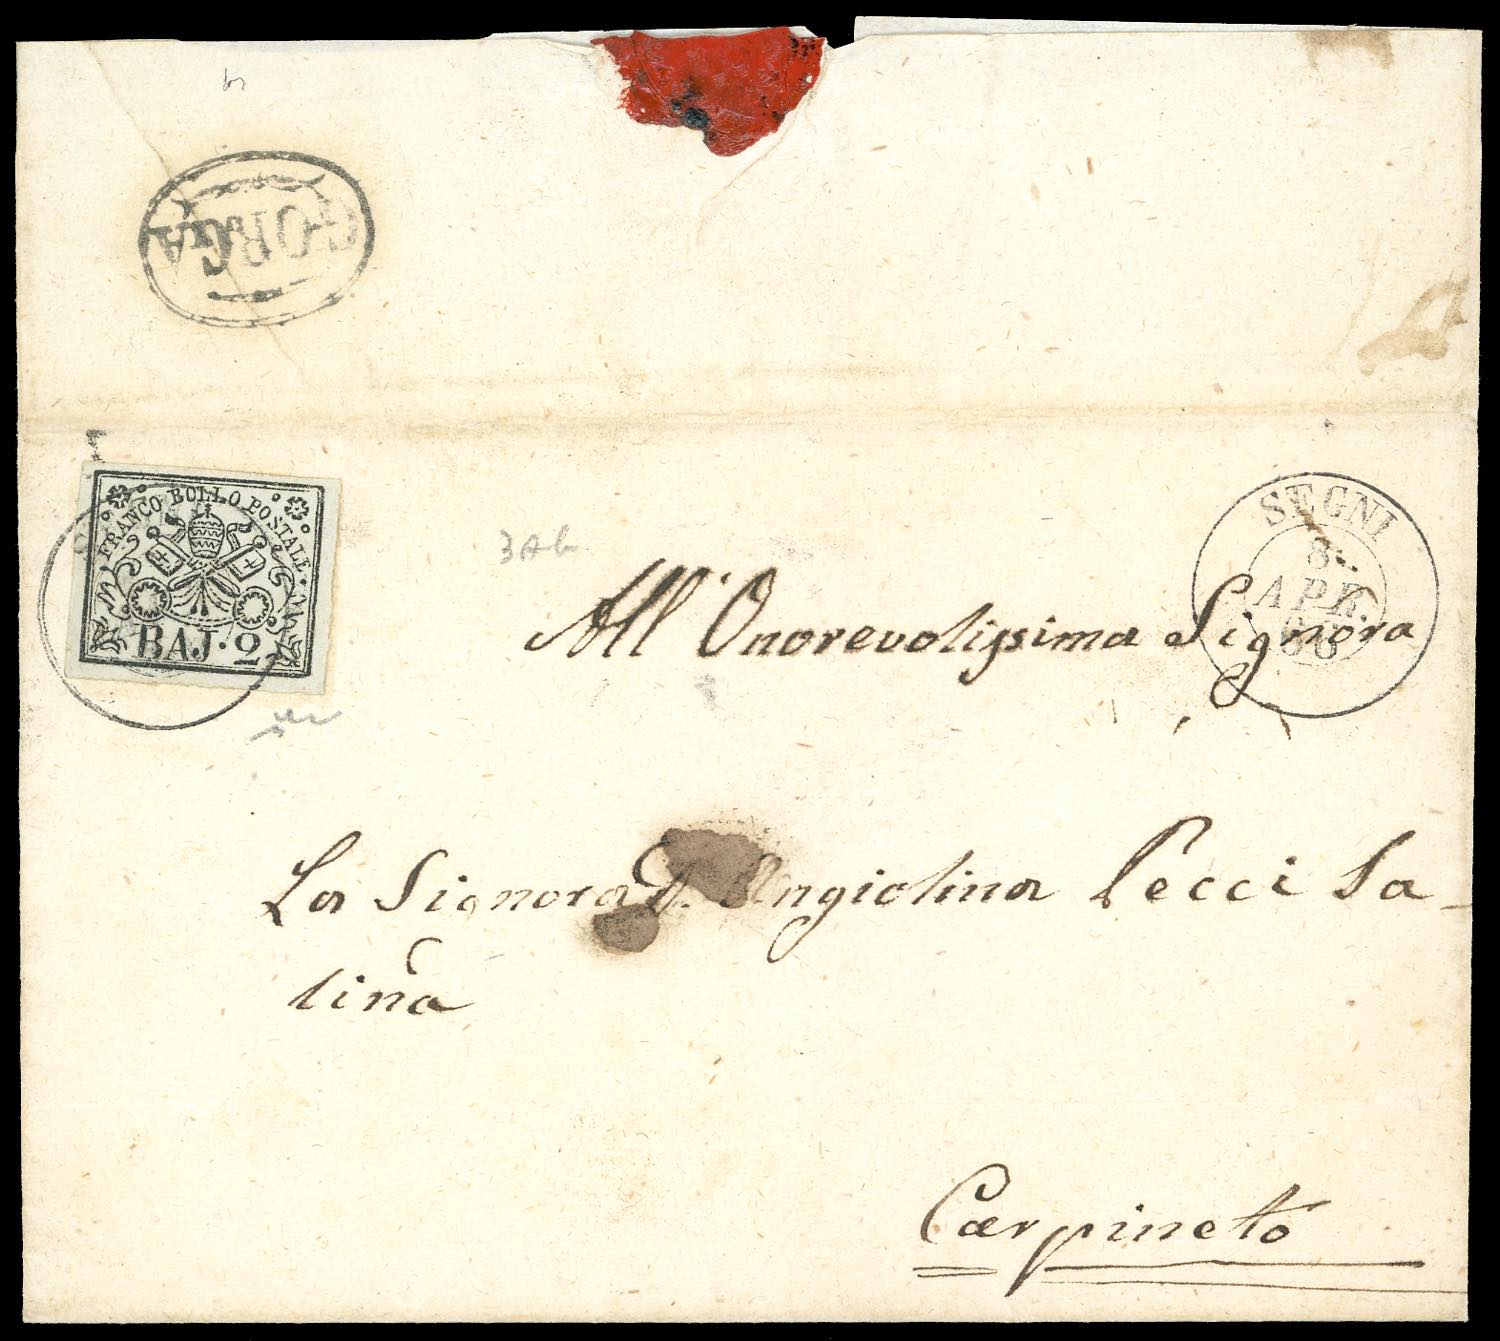 GORGA
FRANCO BOLLO POSTALE
BAJ. 2
3Ab
SEGNI
8
APR.
66
All' Onorevolissima Signora
La Signora D. Angiolina Pecci Sa-
lina
Carpineto